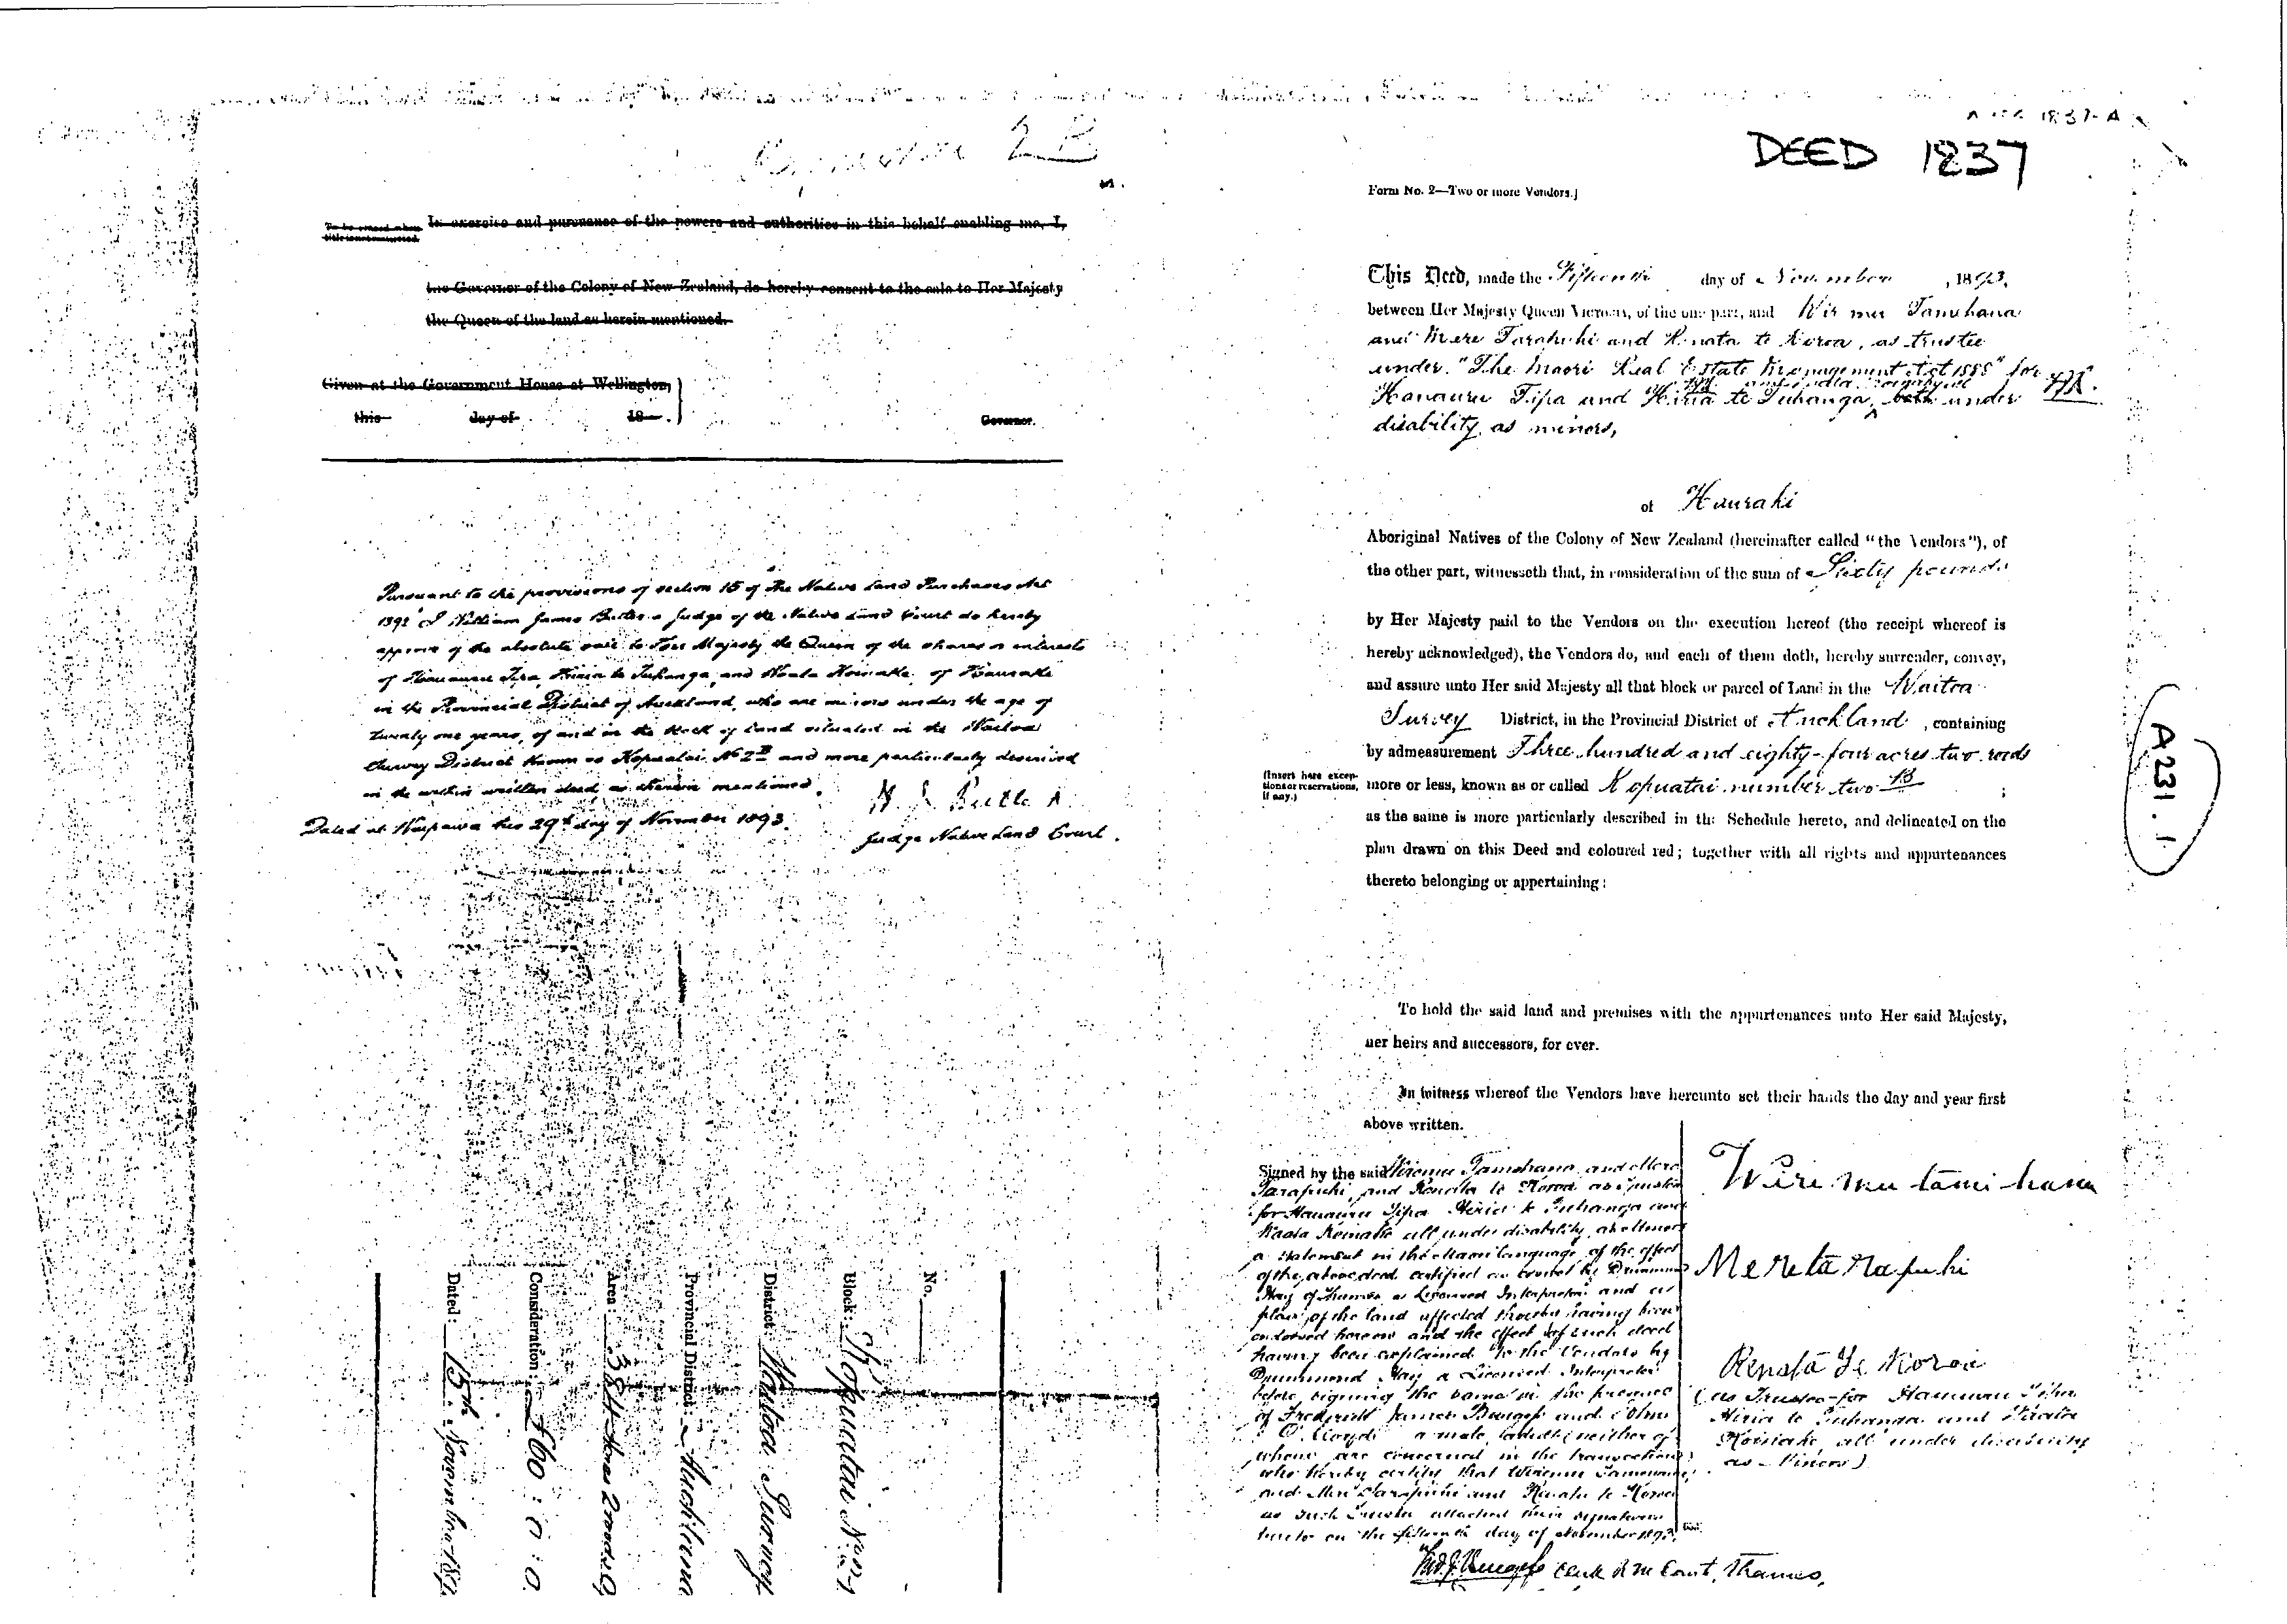 2 B
In exercise and pursuance of the powers and authorities in this behalf enabling me, I,
the Governor of the Colony of New Zealand, do hereby consent to the sale to Her Majesty
the Queen of the land as herein mentioned.
Given at the Government House at Wellington,
this day of 18 .
Governor.
Pursuant to the provisions of section 15 of the Native Land Purchases Act
1892 I William James Butler a Judge of the Native Land Court do hereby
approve of the absolute sale to Her Majesty the Queen of the shares or interests
of Hanauru Tipa, Hiria te Tuhanga, and Naata Koinake, of Hauraki
in the Provincial District of Auckland, who are minors under the age of
twenty one years, of and in the block of land situated in the Waitoa
Survey District known as Kopuatai No 2B and more particularly described
in the within written deed as therein mentioned.
Dated at Waipawa this 29th day of November 1893.
Judge Native Land Court.
No.
Block: Kopuatai No 2
District: Waitoa Survey
Provincial District: Auckland
Area: 384 Acres 2 roods 0
Consideration: £60 : 0 : 0
Dated: 15th November 189
1837-A
DEED 1837
Form No. 2—Two or more Vendors.]
This Deed, made the Fifteenth day of November , 1893,
between Her Majesty Queen Victoria, of the one part, and Wiremu Tamehana
and Mere Tarapuhi and Renata te Koroa, as trustee
under "The Maori Real Estate Management Act 1888" for
Hanauru Tipa and Hiria te Tuhanga, both under
disability, as minors,
of Hauraki
Aboriginal Natives of the Colony of New Zealand (hereinafter called "the Vendors"), of
the other part, witnesseth that, in consideration of the sum of Sixty pounds
by Her Majesty paid to the Vendors on the execution hereof (the receipt whereof is
hereby acknowledged), the Vendors do, and each of them doth, hereby surrender, convey,
and assure unto Her said Majesty all that block or parcel of Land in the Waitoa
Survey District, in the Provincial District of Auckland , containing
by admeasurement Three hundred and eighty-four acres two roods
(Insert here exceptions or reservations, if any.)
more or less, known as or called Kopuatai number two B ;
as the same is more particularly described in the Schedule hereto, and delineated on the
plan drawn on this Deed and coloured red; together with all rights and appurtenances
thereto belonging or appertaining:
A 231.1
To hold the said land and premises with the appurtenances unto Her said Majesty,
her heirs and successors, for ever.
In witness whereof the Vendors have hereunto set their hands the day and year first
above written.
Signed by the said Wiremu Tamehana and Mere
Tarapuhi, and Renata te Koroa as Trustee
for Hanauru Tipa Hiria te Tuhanga and
Naata Koinake all under disability, as Minors
a statement in the Maori language of the effect
of the above deed certified as correct by Drummond
Hay of Thames a Licensed Interpreter and a
plan of the land affected thereby having been
endorsed hereon and the effect of such deed
having been explained to the Vendors by
Drummond Hay a Licensed Interpreter
before signing the same in the presence
of Frederick James Burgess and John
a male adult (neither of
whom are concerned in the transaction)
who hereby certify that Wiremu Tamehana
and Mere Tarapuhi and Renata te Koroa
as such Trustee attached their signatures
hereto on the fifteenth day of November 1893.
Wiremu tamihana
Mere tarapuhi
Renata Te Koroa
(as Trustee for Hanauru Tipa
Hiria te Tuhanga and Naata
Koinake, all under disability
as Minors)
Fred J. Burgess Clerk R M Court, Thames,